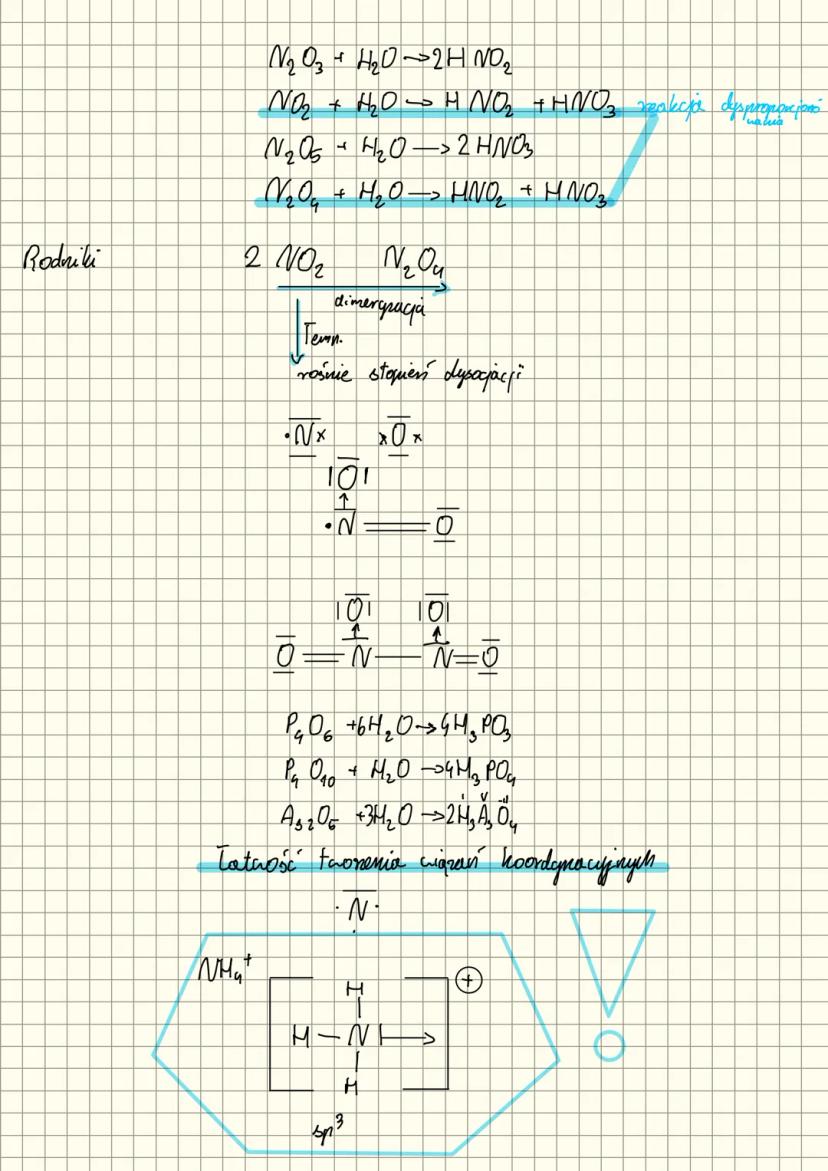 N₂O₃ + H₂O → 2HNO₂
NO₂ + H₂O → HNO₂ + HNO₃ reakcja dysproporcjono
wania
N₂O₅ + H₂O → 2HNO₃
N₂O₄ + H₂O → HNO₂ + HNO₃
Rodniki 2 NO₂ N₂O₄
dimeryzacja
Temp.
rośnie stopień dysocjacji
·N× ×O×
|O|
↑
·N=O
|O| |O|
↑ ↑
O=N—N=O
P₄O₆ + 6H₂O → 4H₃PO₃
P₄O₁₀ + H₂O → 4H₃PO₄
I V -II
As₂O₅ + 3H₂O → 2H₃AsO₄
Łatwość tworzenia wiązań koordynacyjnych
·N·
NH₄⁺
H +
H—N|→
H
sp³